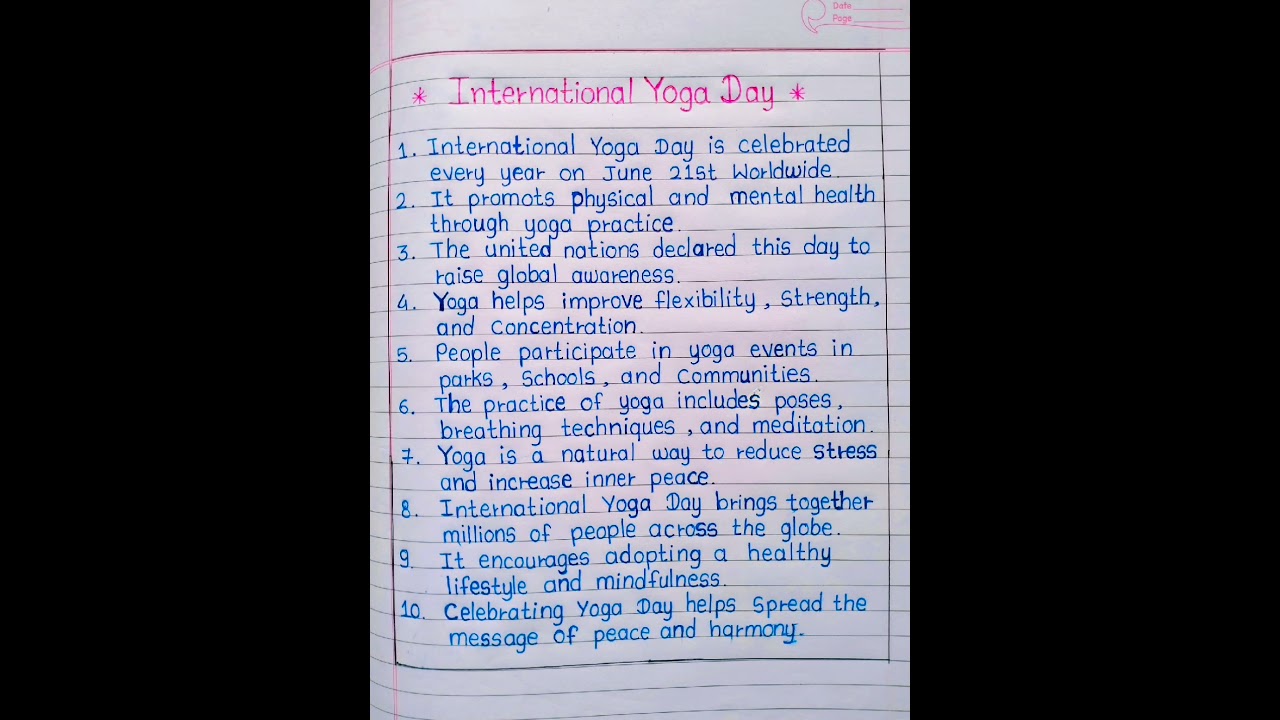 Date
Page
* International Yoga Day *
1. International Yoga Day is celebrated
every year on June 21st Worldwide.
2. It promots physical and mental health
through yoga practice.
3. The united nations declared this day to
raise global awareness.
4. Yoga helps improve flexibility, Strength,
and Concentration.
5. People participate in yoga events in
parks, Schools, and Communities.
6. The practice of yoga includes poses,
breathing techniques, and meditation.
7. Yoga is a natural way to reduce stress
and increase inner peace.
8. International Yoga Day brings together
millions of people across the globe.
9. It encourages adopting a healthy
lifestyle and mindfulness.
10. Celebrating Yoga Day helps Spread the
message of peace and harmony.